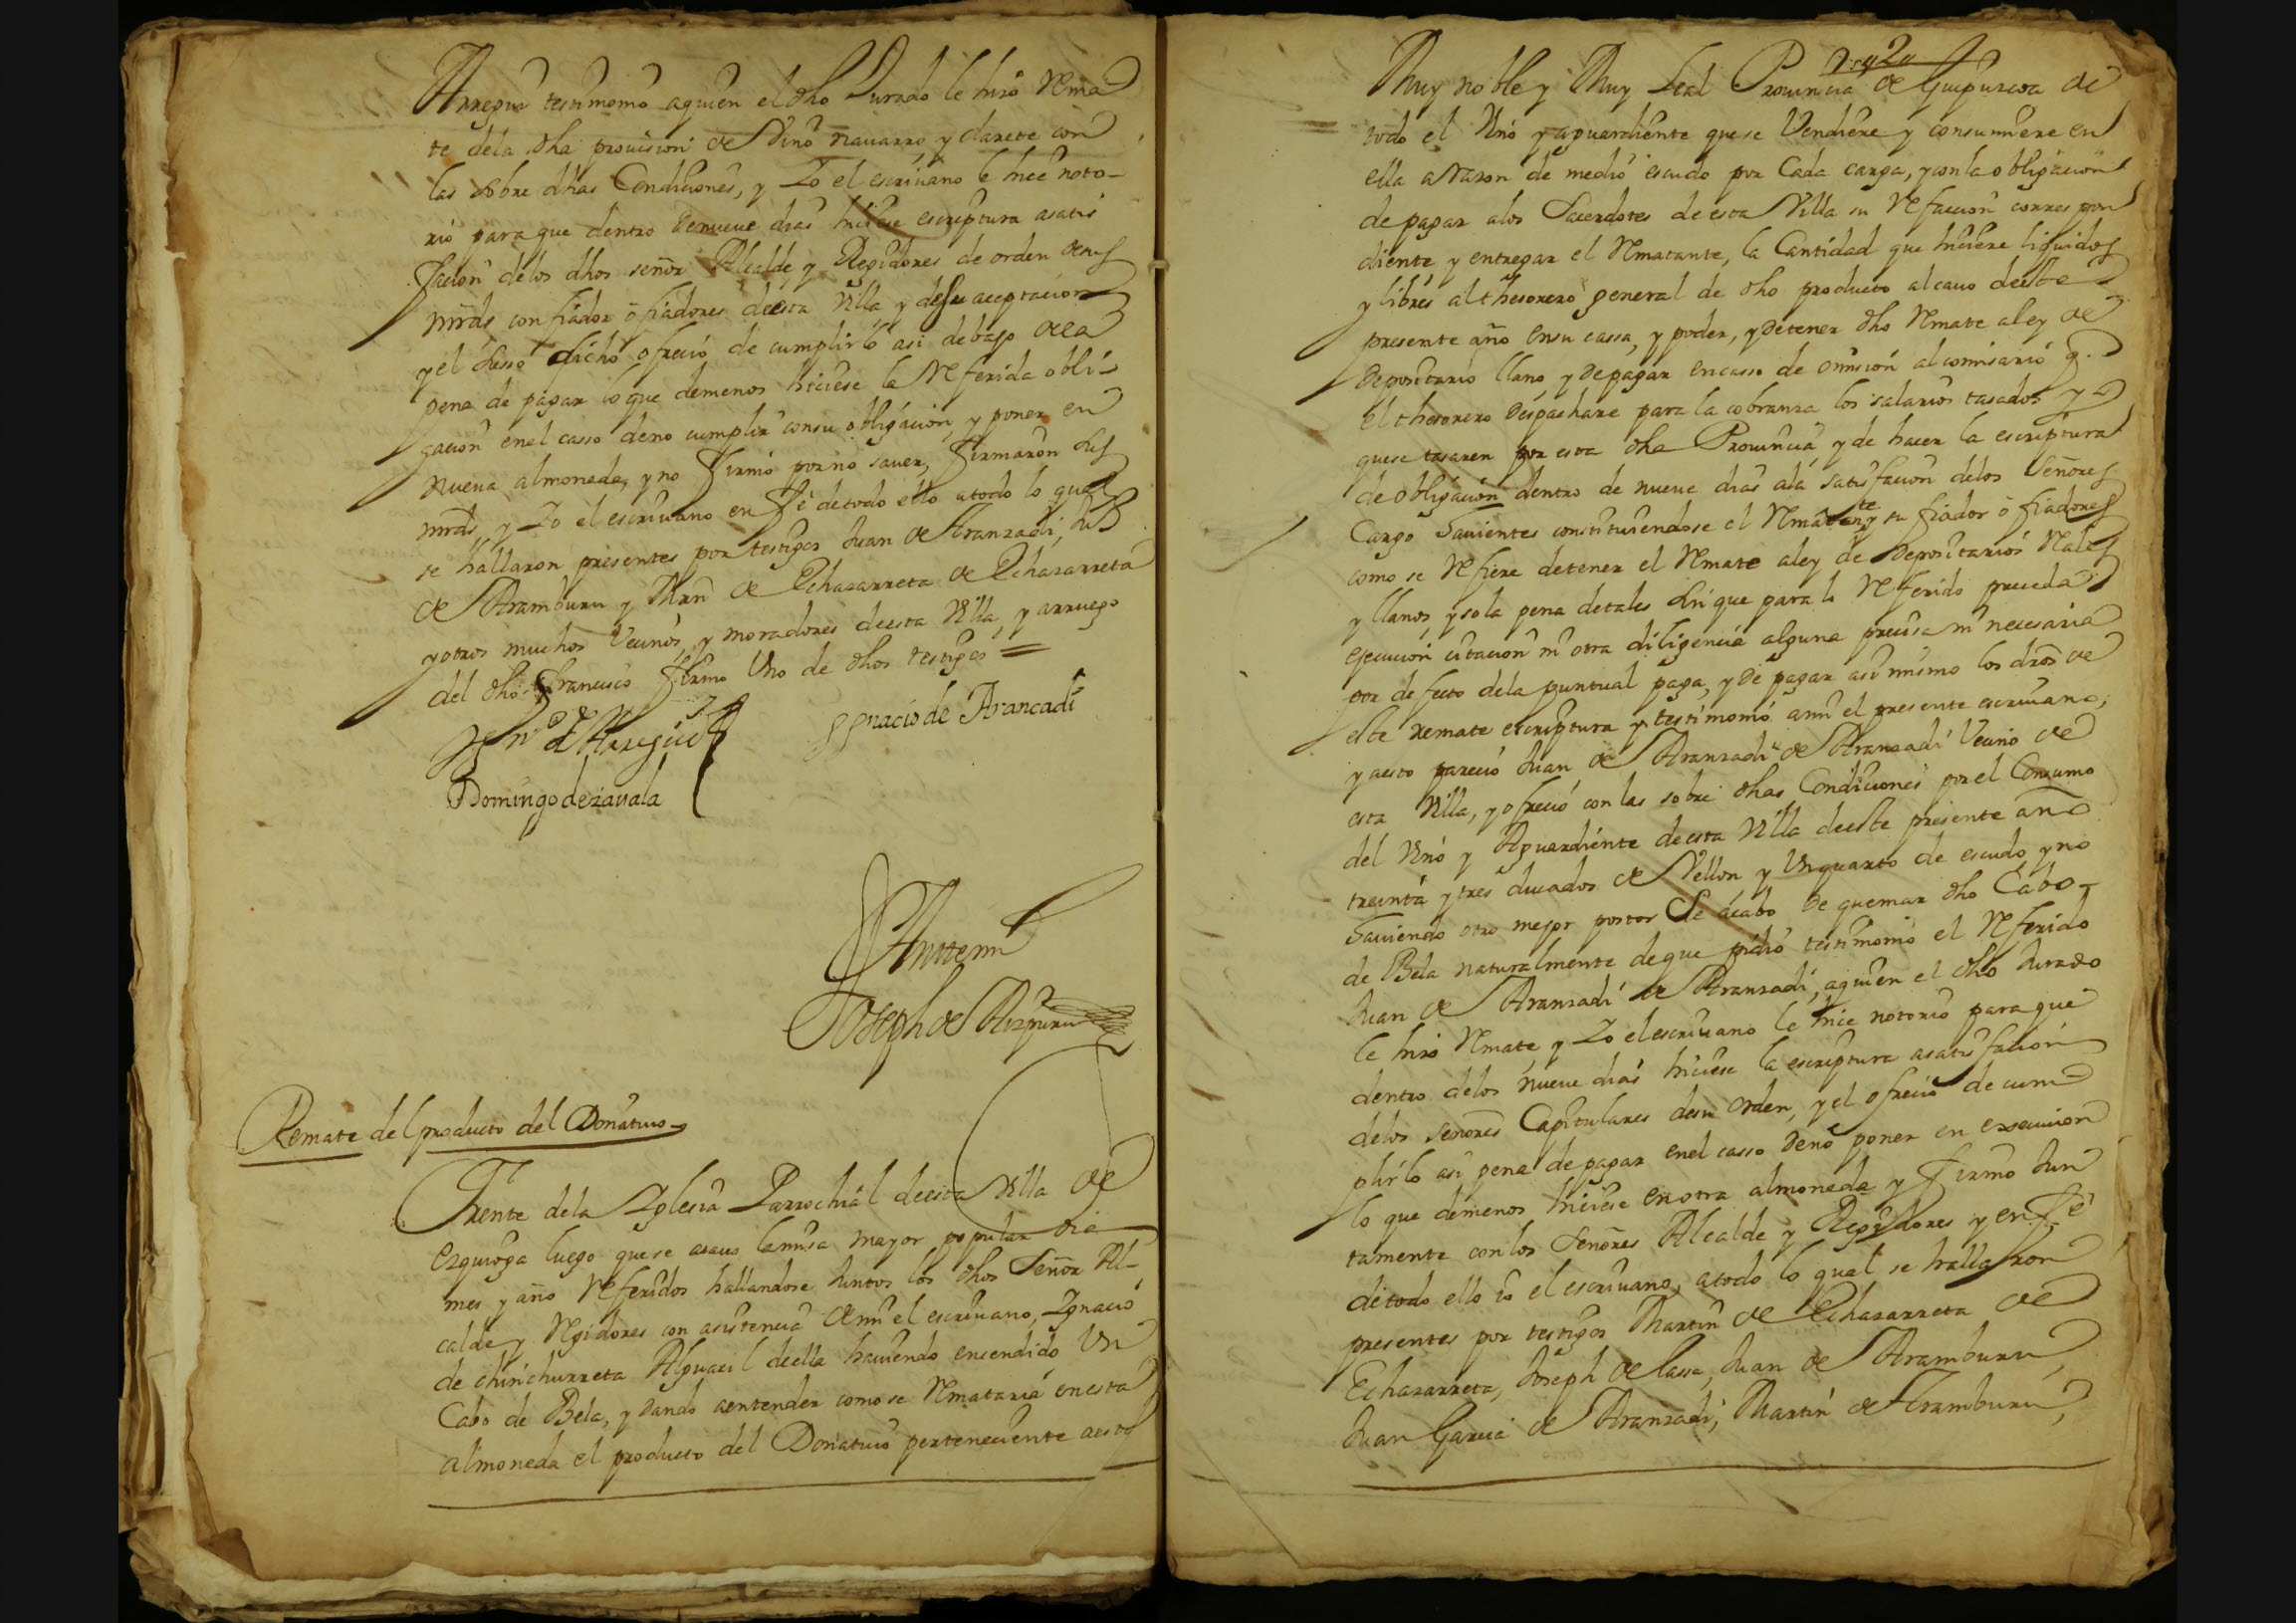 Arregui testimonio aquien el dho Jurado le hizo Rema
te dela dha prouision de Vino nauarro y clarete con
las sobre dhas Condiciones, y Yo el escriuano le hice noto-
rio para que dentro denueue dias hiciese escriptura asatis
facion delos dhos señor Alcalde y Regidores de orden de sus
mrds con fiador o fiadores deesta Villa y desu aceptacion
y el suso dicho ofrecio de cumplirlo asi debajo dela
pena de pagar lo que demenos hiciese la Referida obli-
gacion enel casso deno cumplir consu obligacion, y poner en
nueua almoneda, y no firmó porno sauer, firmaron sus
mrds, y Yo el escriuano en fe detodo ello atodo lo qual
se hallaron presentes por testigos Juan de Aranzadi,
de Aramburu y Mrn de Echazarreta de Echazarreta
y otros muchos Vecinos, y moradores deesta Villa, y arruego
del dho Francisco firmo Vno de dhos testigos =
de Arregui
Ygnacio de Arancadi
Domingo dezauala
Antemi
Joseph de Aizpuru
Remate del producto del Donatiuo
Frente dela Yglesia Parrochial deesta Villa de
Ezquioga luego quese acauo lamisa mayor popular dia
mes y año Referidos hallandose Juntos los dhos Señor Al-
calde y Regidores con asistencia demi el escriuano, Ygnacio
de chinchurreta Alguazil deella hauiendo encendido Vn
Cabo de Bela, y dando aentender como se Remataria enesta
almoneda el producto del Donatiuo perteneciente aesta
Muy noble y Muy Leal Prouincia de Guipuzcoa de
todo el Vino y aguardiente quese Vendiere y consumiere en
ella arazon de medio escudo por Cada carga, y con la obligacion
de pagar alos Sacerdotes deesta Villa su Refacion correspon
diente y entregar el Rematante, la Cantidad que hiciere liquidos
y libres althesorero general de dho producto alcauo deeste
presente año ensu cassa, y poder, y detener dho Remate aley de
Depositario llano, y de pagar encasso de omision alcomisario q.
el thesorero despachare para la cobranza los salarios tasados y
quese tasaren por esta dha Prouincia y de hacer la escriptura
de obligacion dentro de nueue dias ala satisfacion delos Señores
Cargo hauientes constituiendose el Rematante y su fiador o fiadores
como se Refiere detener el Remate aley de Depositarios Reales
y llanos y so la pena detales sin que para lo Referido preceda
ejecucion citacion ni otra diligencia alguna precisa ni necesaria
por defecto dela puntual paga, y de pagar asi mismo los dros de
este remate escriptura y testimonio ami el presente escriuano,
y aesto parecio Juan de Aranzadi de Aranzadi Vecino de
esta Villa, y ofrecio con las sobre dhas Condiciones por el Consumo
del Vino y Aguardiente deesta Villa deeste presente año
treinta y tres ducados de Vellon y Vnquarto de escudo y no
hauiendo otro mejor postor Se ácabo De quemar dho Cabo
de Bela naturalmente de que pidio testimonio el Referido
Juan de Aranzadi de Aranzadi, aquien el dho Jurado
le hizo Remate y Yo el escriuano le hice notorio para que
dentro delos nueue dias hiciese la escriptura asatisfacion
delos señores Capitulares desu orden, y el ofrecio de cum
plirlo asi pena de pagar enel casso deno poner en execucion
lo que demenos hiciese en otra almoneda y firmo Jun
tamente con los Señores Alcalde y Regidores y en fe
de todo ello io el escriuano, atodo lo qual se hallaron
presentes por testigos Martin de Echazarreta de
Echazarreta, Joseph de lassa, Juan de Aramburu,
Juan Garcia de Aranzadi, Martin de Aramburu,